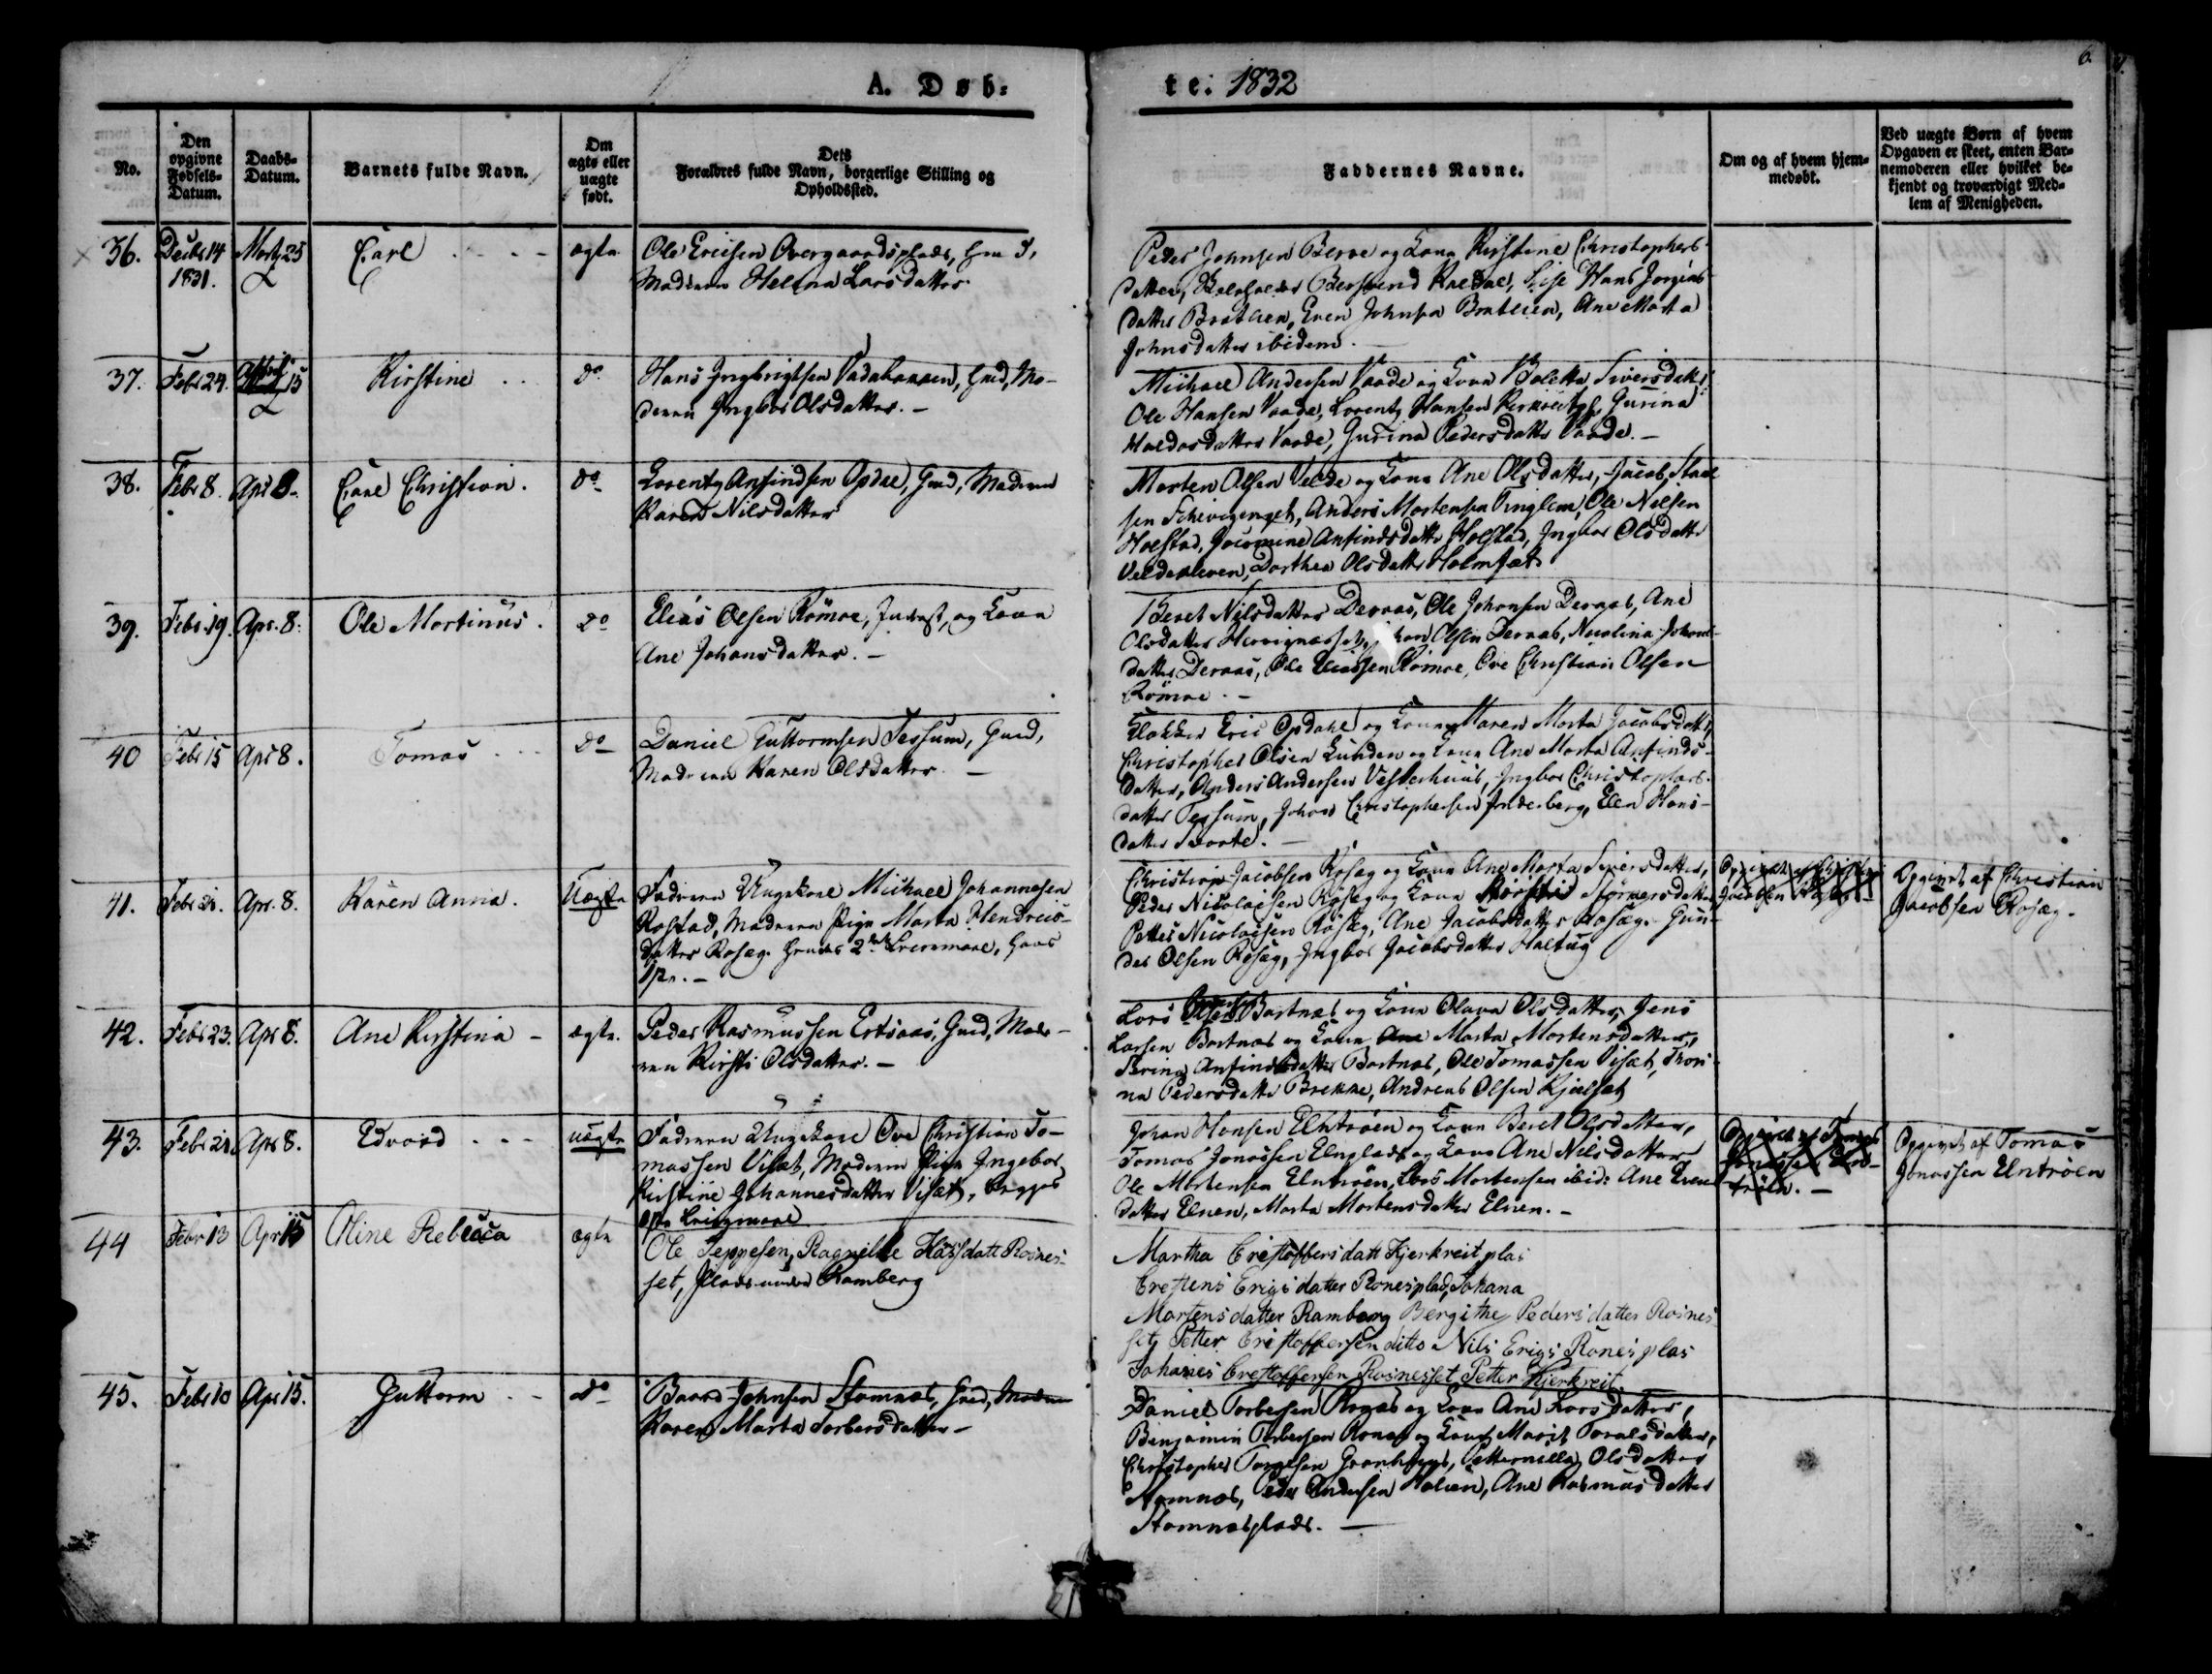 A. Døb-
te: 1832
6.
No.
Den opgivne Fødsels-Datum.
Daabs-Datum.
Barnets fulde Navn.
Om ægte eller uægte født.
Dets Forældres fulde Navn, borgerlige Stilling og Opholdssted.
Faddernes Navne.
Om og af hvem hjemmedøbt.
Ved uægte Børn af hvem Opgaven er skeet, enten Barnemoderen eller hvilket bekjendt og troværdigt Medlem af Menigheden.
36. Decbr 14 1831. Marts 25 Carl ægte
Ole Ericsen Overgaardsplads,
Moderen Helena Larsdatter
Peder Johnsen Berve og Kone Kirstine Christophers-
datter, Lise Hans Jørgens
datter Bratlien, Even Johnsen Bratlien, Ane Marta
Johnsdatter ibidem.
37. Febr 24. April 15 Kirstine do
Hans Ingbrigtsen Vadahaanen, Gmd, Mo-
deren Ingbor Olsdatter. -
Michael Andersen Vaade og Kone Boletta Siversdatt:
Ole Hansen Vaade, Lorentz Hansen Gurina
Haldosdatter Vaade, Gurina Pedersdatter Vaade. -
38. Febr 8. Apr 8. Carl Christian. do
Lorentz Anfindsen Opdal, Gmd, Moderen
Karen Nilsdatter
Morten Olsen Velde og Kone Ane Olsdatter, Jacob
Anders Mortensen Tinglem, Ole Nilsen
Holstad, Anfindsdatter Holstad, Ingbor Olsdatter
Dorthea Olsdatter
39. Febr. 19. Apr. 8. Ole Martinus. do
Elias Olsen Rømoe, Inderst, og Kone
Ane Johansdatter. -
Beret Nilsdatter Deraas, Ole Johansen Deraas, Ane
Olsdatter Johan Olsen Deraas, Nicolina Johans-
datter Deraas, Ole Eliassen Rømoe, Ove Christian Olsen
Rømoe. -
40 Febr 15 Apr 8. Tomas do
Daniel Guttormsen Tessum, Gmd,
Moderen Karen Olsdatter. -
Klokker Eric Opdahl og Kone Maren Marta Jacobsdatt:
Christopher Olsen Lunden og Kone Ane Marta Anfinds-
datter, Anders Andersen Vesterhuus, Ingbor Christophers-
datter Tessum, Johan Christophersen Inderberg, Elen Hans-
datter
41. Febr 21. Apr. 8. Karen Anna. Uægte
Faderen Ungekarl Michael Johannesen
Rostad, Moderen Pige Marta Hendrics-
datter Rosæg. Hendes 2det Leiermaal, hans
1ste. -
Christian Jacobsen Rosæg og Kone Ane Marta Siversdatter,
Peder Nicolaisen Rosæg og Kone
Petter Nicolaisen Rosæg, Ane Jacobsdatter Rosæg. Gun-
der Olsen Rosæg, Ingbor Jacobsdatter Haltug
Opgivet af Christian
Jacobsen Rosæg.
42. Febr 23. Apr 8. Ane Kirstina - ægte.
Peder Rasmussen Ertsaas, Gmd, Mode-
ren Kirsti Olsdatter. -
Lars Bartnæs og Kone Olava Olsdatter, Jens
Larsen Bartnæs og Kone Marta Mortensdatter,
Anfindsdatter Bartnæs, Ole Tomassen Visæt, Thori-
na Pedersdatter Brekke, Andreas Olsen
43. Febr 21. Apr 8. Edvard uægte
Faderen Ungekarl Ove Christian To-
massen Visæt, Moderen Pige Ingebor
Kirstine Johannesdatter Visæt, begges
1ste Leiermaal
Johan Hansen Elntrøen og Kone Beret Olsdatter,
Tomas Jonassen Elnplads og Kone Ane Nilsdatter
Ole Mortensen Elntrøen, Lars Mortensen ibid: Ane
datter Elnen, Marta Mortensdatter Elnen. -
Opgivet af Tomas
Jonassen Elntrøen
44 Febr 13 Apr 15 Oline Rebecca ægte
Ole Jeppesen, Ragnilde Klasdatt Rosnes-
set, Plads under Ramberg
Martha Cristoffersdatt Kjerkreit plas
Crestens Erigsdatter Ronesplad, Johana
Martensdatter Ramberg Bergithe Pedersdatter Rosnes
set, Petter Cristoffersen ditto Nils Erigs Rones plas
Johanes Crestoffersen Rosnesset Petter Kjerkreit.
45. Febr 10 Apr 15. Guttorm do
Baard Johnsen Stamnæs, Gmd, Moderen
Karen Marta Torbersdatter -
Daniel Torbersen og Kone Ane Larsdatter,
Benjamin Torbersen og Kone Marit
Christopher Petternilla Olsdatter
Stamnæs, Peder Andersen Ane Rasmusdatter
Stamnæsplads. -